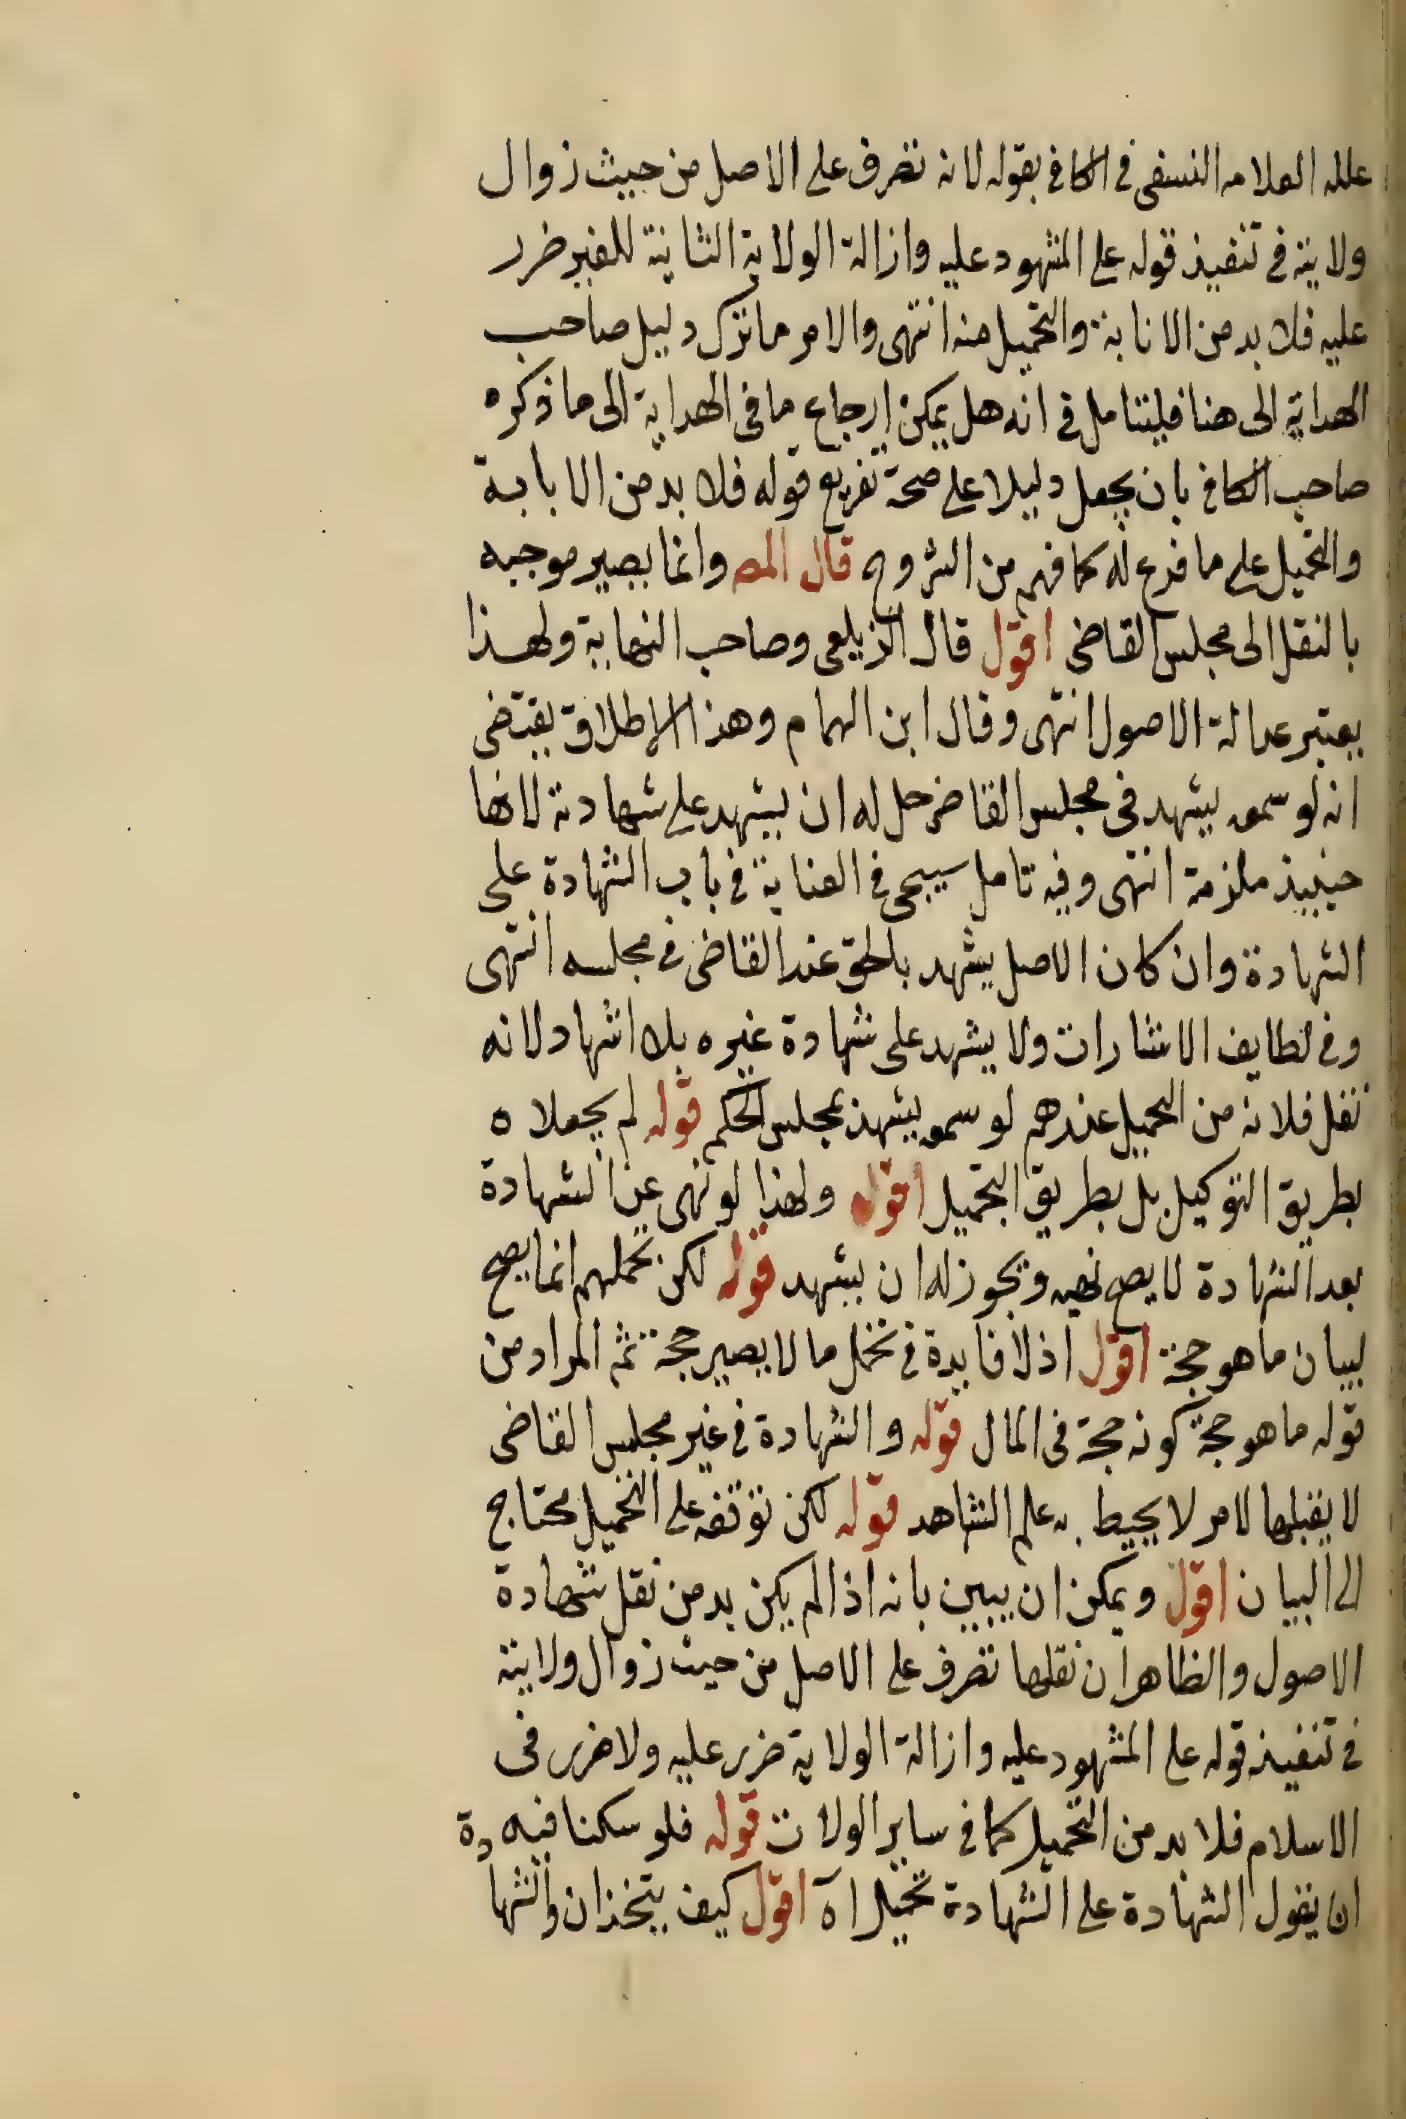 علله العلامه النسفى فى الكافى بقوله لانه تصرف على الاصل من حيث زوال
ولايته فى تنفيذ قوله على المشهود عليه وازالة الولاية الثابتة للغير ضرر
عليه فلا بد من الانابة والتحميل منه انتهى والامر ما ترك دليل صاحب
الهداية الى هنا فليتامل فى انه هل يمكن ارجاع ما فى الهداية الى ما ذكره
صاحب الكافى بان يجعل دليلا على صحة تفريع قوله فلا بد من الانابة
والتحميل على ما فرع له كما فهم من الشروح قال المصـ وانما يصير موجبه
بالنقل الى مجلس القاضى اقول قال الزيلعى وصاحب النهاية ولهذا
يعتبر عدالة الاصول انتهى وقال ابن الهمام وهذا الاطلاق يقتضى
انه لو سمعه يشهد فى مجلس القاضى حل له ان يشهد على شهادته لانها
حينيذ ملزمة انتهى وفيه تامل سيجى فى العناية فى باب الشهادة على
الشهادة وان كان الاصل يشهد بالحق عند القاضى فى مجلسه انتهى
وفى لطايف الاشارات ولا يشهد على شهادة غيره بلا اشهاد لانه
نقل فلانه من التحميل عندهم لو سمعه يشهد بمجلس الحكم قوله لم يجعلاه
بطريق التوكيل بل بطريق التحميل اقوله ولهذا لو نهى عن الشهادة
بعد الشهادة لا يصح نهيه ويجوز له ان يشهد قوله لكن تحملهم انما يصح
لبيان ما هو حجة اقول اذ لا فايدة فى تحمل ما لا يصير حجة ثم المراد من
قوله ما هو حجة كونه حجة فى المال قوله والشهادة فى غير مجلس القاضى
لا يقبلها لامر لا يحيط به علم الشاهد قوله لكن توقفه على التحميل محتاج
الى البيان اقول ويمكن ان يبين بانه اذا لم يكن بد من نقل شهادة
الاصول والظاهر ان نقلها تصرف على الاصل من حيث زوال ولايته
فى تنفيذ قوله على المشهود عليه وازالة الولاية ضرر عليه ولا ضرر فى
الاسلام فلا بد من التحميل كما فى ساير الولات قوله فلو سكنا فيه
ان يقول الشهادة على الشهادة تحميل اه اقول كيف يتخذان والشهادة